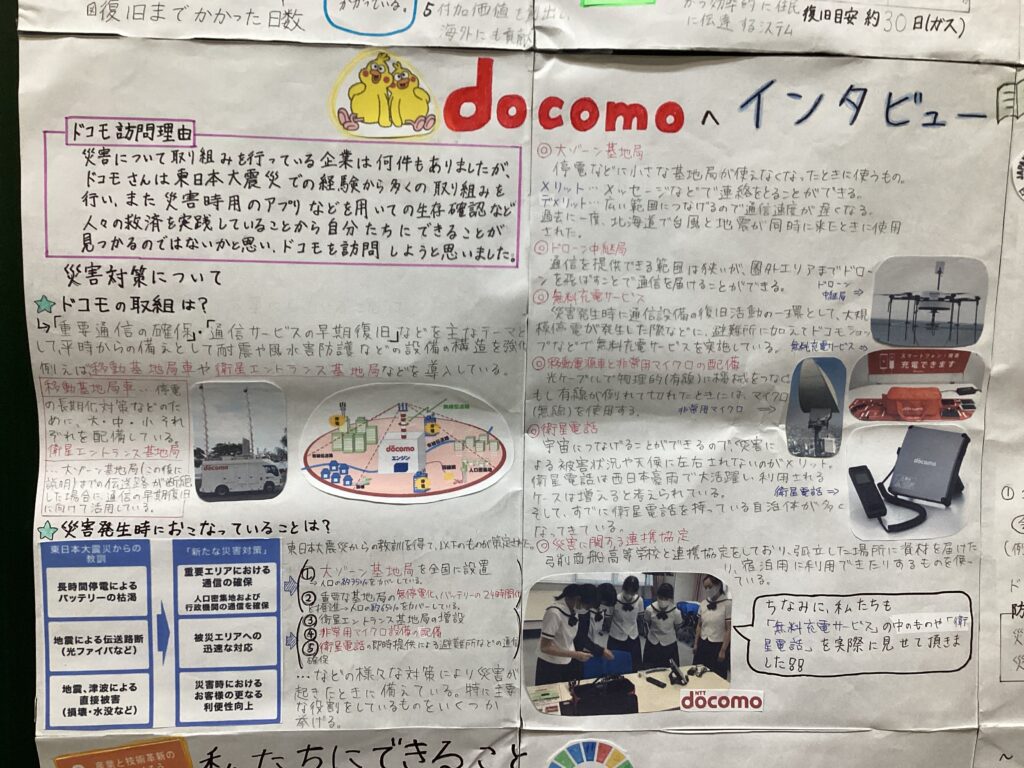 復旧までかかった日数
かかっている。
海外にも貢献
に伝達するシステム
復旧目安 約30日(ガス)
docomoへインタビュー
ドコモ訪問理由
災害について取り組みを行っている企業は何件もありましたが、
ドコモさんは東日本大震災での経験から多くの取り組みを
行い、また災害時用のアプリなどを用いての生存確認など
人々の救済を実践していることから自分たちにできることが
見つかるのではないかと思い、ドコモを訪問しようと思いました。
災害対策について
★ドコモの取組は?
↳「重要通信の確保」・「通信サービスの早期復旧」などを主なテーマと
して、平時からの備えとして耐震や風水害防護などの設備の構造を強化
例えば移動基地局車や衛星エントランス基地局などを導入している。
移動基地局車…停電
の長期化対策などのた
めに、大・中・小それ
ぞれを配備している。
衛星エントランス基地局
…大ゾーン基地局(この後に
説明)までの伝送路が断絶
した場合に通信の早期復旧
に向けて活用している。
docomo
docomo
エンジン
★災害発生時におこなっていることは?
東日本大震災からの
教訓
長時間停電による
バッテリーの枯渇
地震による伝送路断
(光ファイバなど)
地震、津波による
直接被害
(損壊・水没など)
「新たな災害対策」
重要エリアにおける
通信の確保
人口密集地および
行政機関の通信を確保
被災エリアへの
迅速な対応
災害時における
お客様の更なる
利便性向上
東日本大震災からの教訓を得て、以下のものが策定された。
①大ゾーン基地局を全国に設置
→人口の約35%をカバーしている。
②重要な基地局の無停電化、バッテリーの24時間化
を推進→人口の約65%をカバーしている。
③衛星エントランス基地局の増設
④非常用マイクロ設備の配備
⑤衛星電話の即時提供による避難所などの通信
確保
…などの様々な対策により災害が
起きたときに備えている。特に主要
な役割をしているものをいくつか
挙げる。
◎大ゾーン基地局
停電などに小さな基地局が使えなくなったときに使うもの。
メリット…メッセージなどで連絡をとることができる。
デメリット…広い範囲につなげるので通信速度が遅くなる。
過去に一度、北海道で台風と地震が同時に来たときに使用
された。
◎ドローン中継局
通信を提供できる範囲は狭いが、圏外エリアまでドロー
ンを飛ばすことで通信を届けることができる。
ドローン
中継局⇒
◎無料充電サービス
災害発生時に通信設備の復旧活動の一環として、大規
模停電が発生した際などに、避難所に加えてドコモショッ
プなどで無料充電サービスを実施している。
無料充電サービス⇒
スマートフォン・携帯
充電できます
◎移動電源車と非常用マイクロの配備
光ケーブルで物理的(有線)に機械をつなぐ
もし有線が切れてしまったときには、マイクロ
(無線)を使用する。
非常用マイクロ→
◎衛星電話
宇宙につなげることができるので、災害に
よる被害状況や天候に左右されないのがメリット。
衛星電話は西日本豪雨で大活躍し、利用される
ケースは増えると考えられている。
衛星電話⇒
そして、すでに衛星電話を持っている自治体が多く
なってきている。
docomo
◎災害に関する連携協定
弓削商船高等学校と連携協定をしており、孤立した場所に資材を届けた
り、宿泊用に利用できたりするものを使っ
ている。
ちなみに、私たちも
「無料充電サービス」の中のものや「衛
星電話」を実際に見せて頂きま
した!!
NTT
docomo
産業と技術革新の
私たちにできること